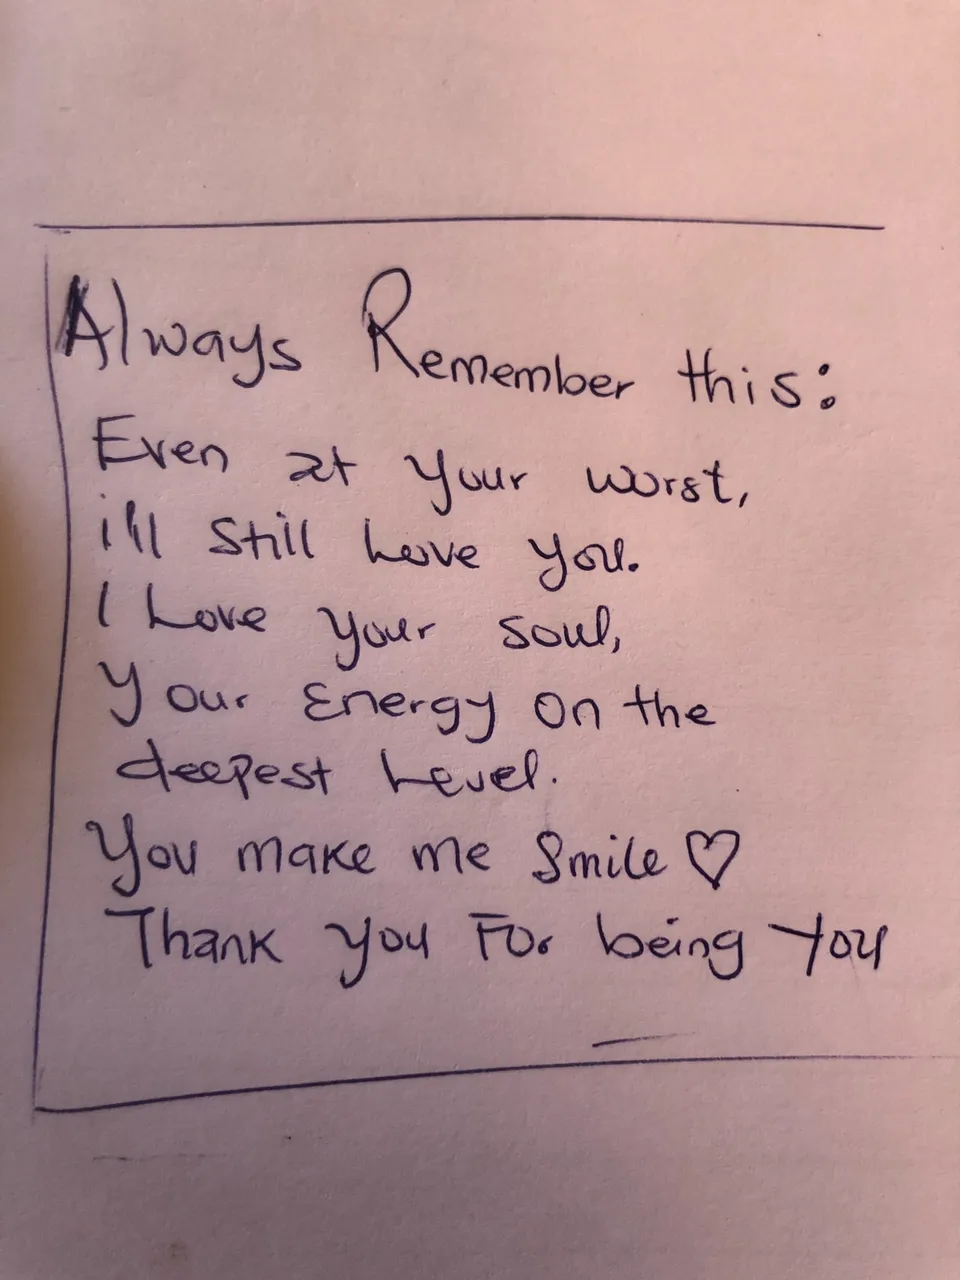 Always Remember this:
Even at your worst,
i'll still Love you.
I Love your soul,
Your Energy on the
deepest Level.
You make me Smile ♡
Thank you For being You